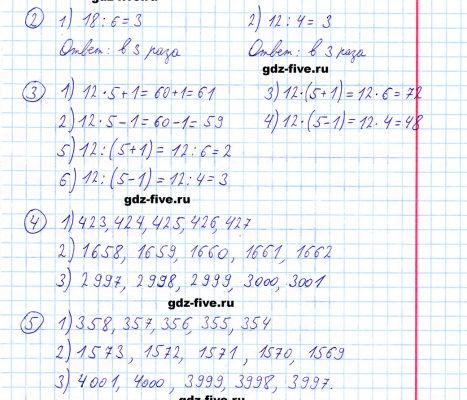 gdz-five.ru
② 1) 18 : 6 = 3 2) 12 : 4 = 3
Ответ: в 3 раза Ответ: в 3 раза
gdz-five.ru
③ 1) 12 · 5 + 1 = 60 + 1 = 61 3) 12 · (5 + 1) = 12 · 6 = 72
2) 12 · 5 - 1 = 60 - 1 = 59 4) 12 · (5 - 1) = 12 · 4 = 48
5) 12 : (5 + 1) = 12 : 6 = 2
6) 12 : (5 - 1) = 12 : 4 = 3
gdz-five.ru
④ 1) 423, 424, 425, 426, 427
2) 1658, 1659, 1660, 1661, 1662
3) 2997, 2998, 2999, 3000, 3001
gdz-five.ru
⑤ 1) 358, 357, 356, 355, 354
2) 1573, 1572, 1571, 1570, 1569
3) 4001, 4000, 3999, 3998, 3997.
gdz-five.ru